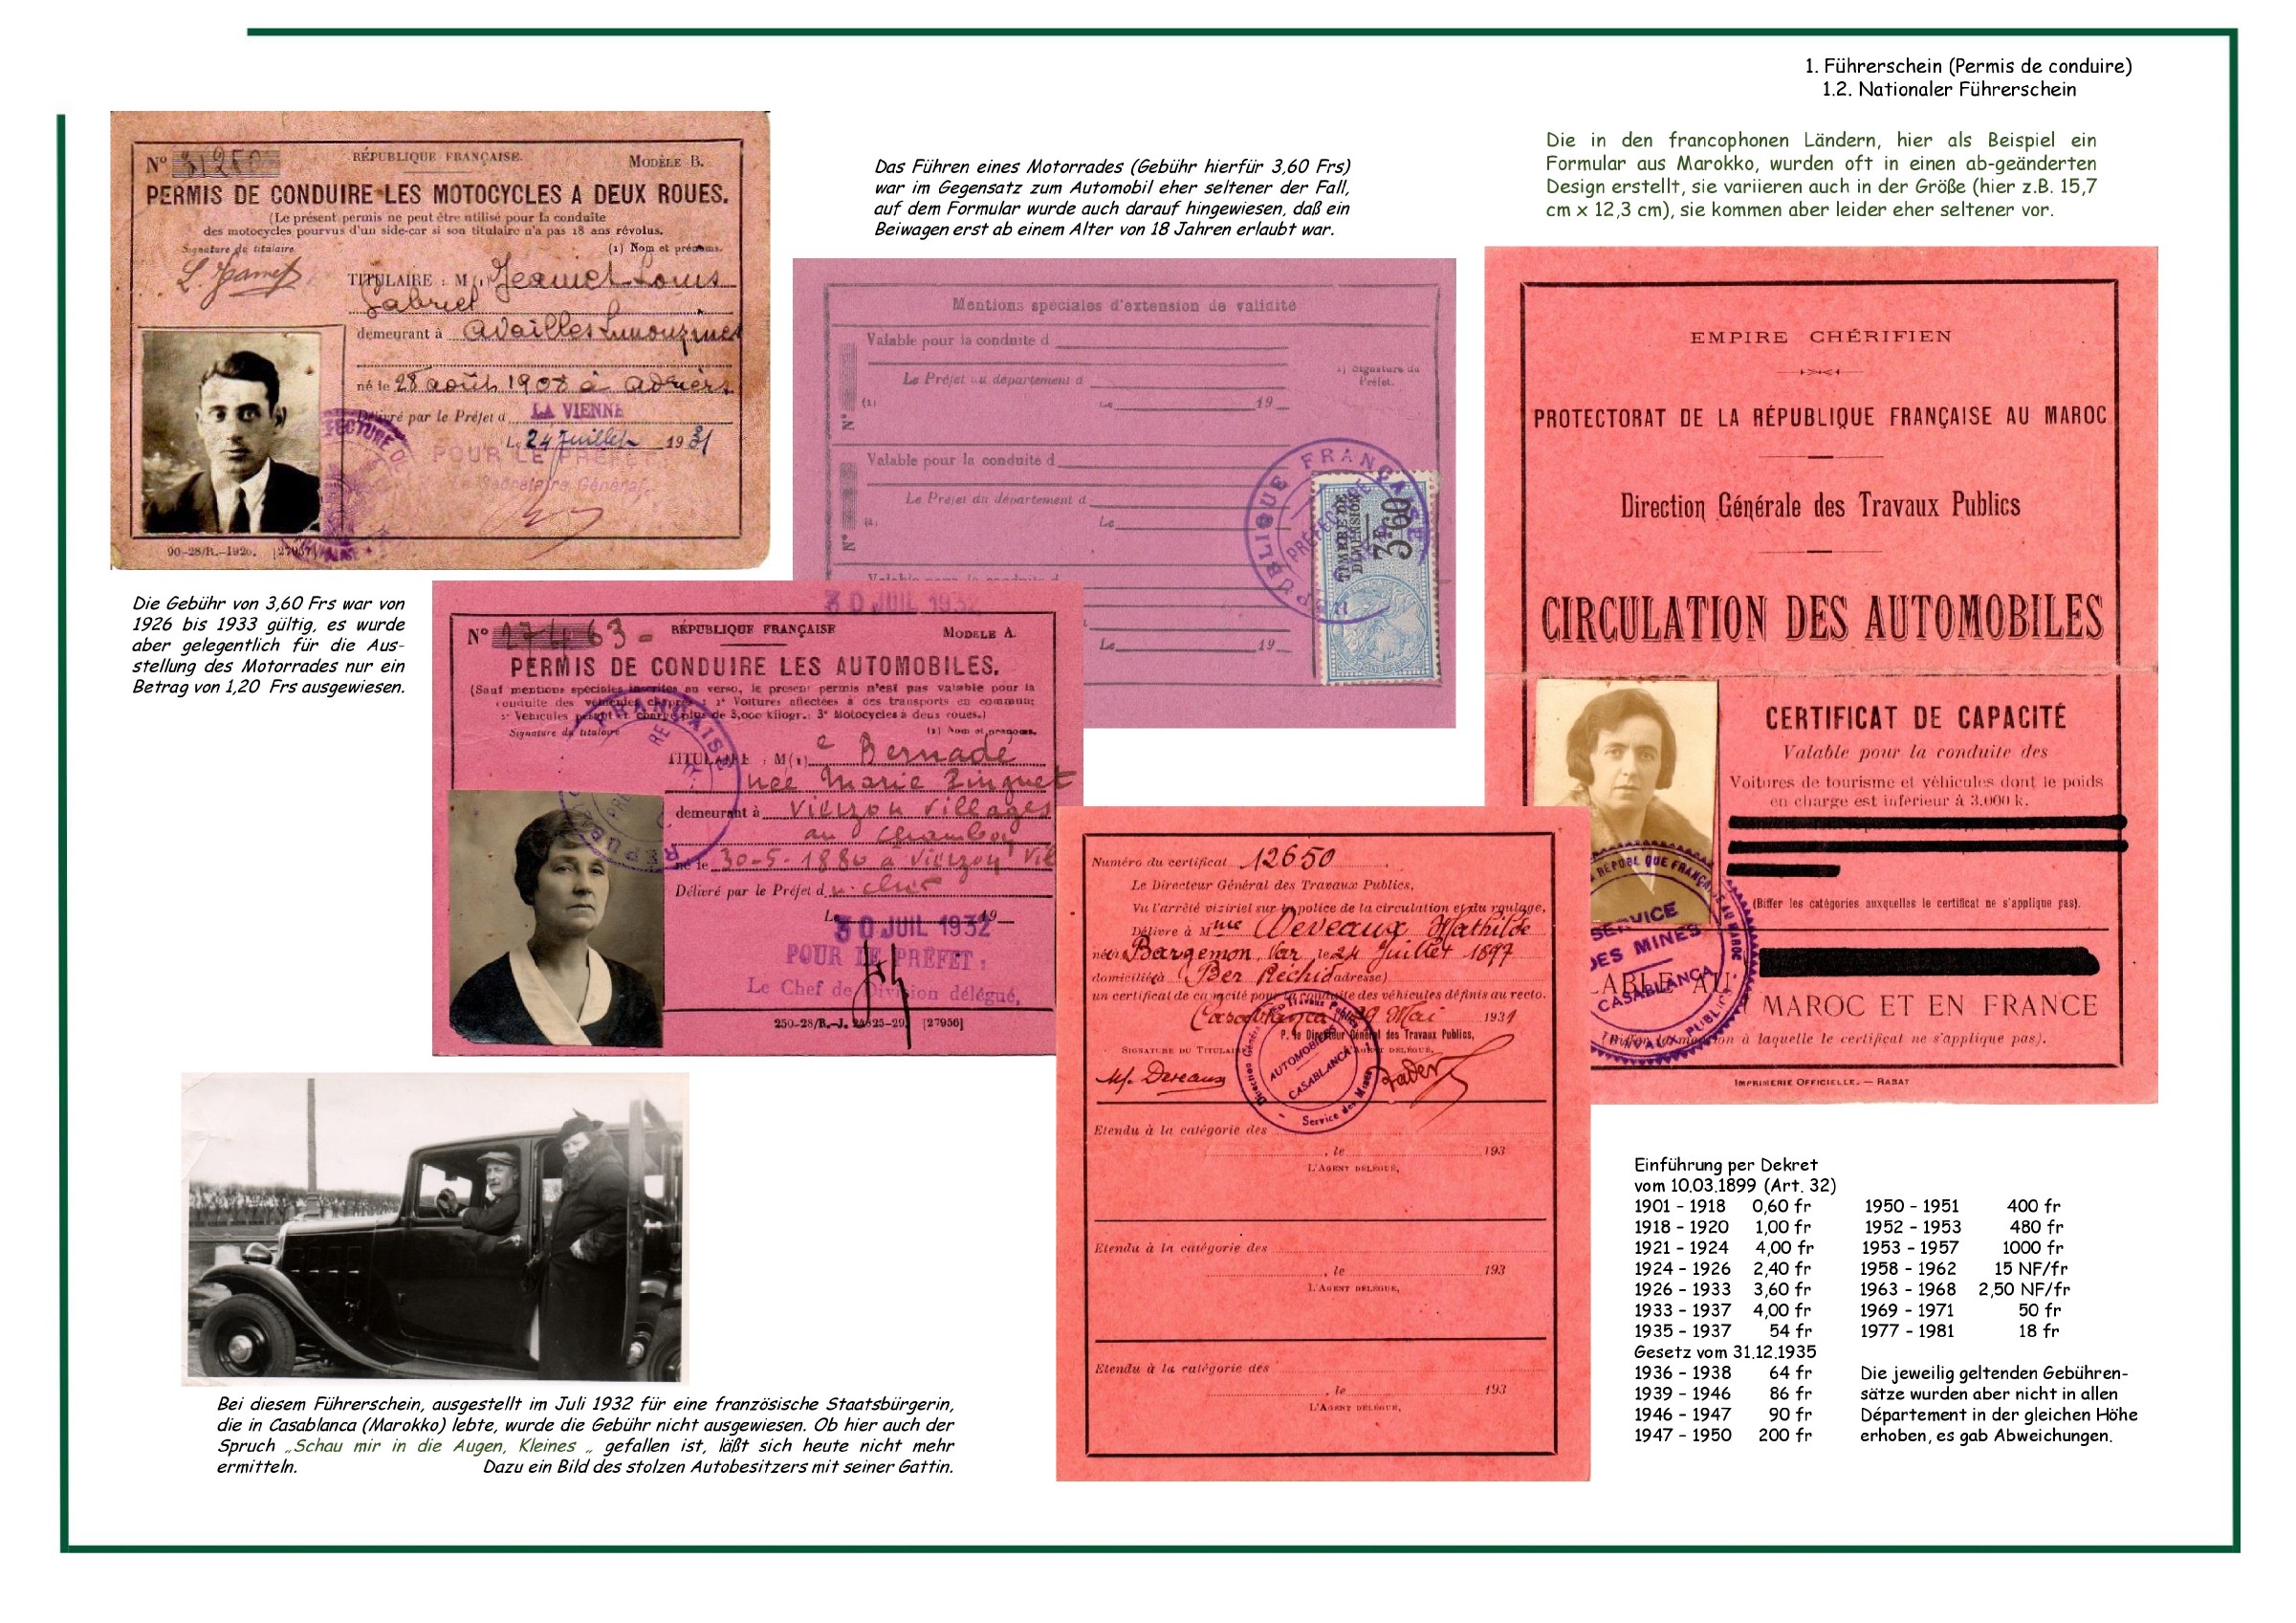 1. Führerschein (Permis de conduire)
1.2. Nationaler Führerschein
Nº 31250
RÉPUBLIQUE FRANÇAISE.
MODÈLE B.
PERMIS DE CONDUIRE LES MOTOCYCLES A DEUX ROUES.
(Le présent permis ne peut être utilisé pour la conduite
des motocycles pourvus d'un side-car si son titulaire n'a pas 18 ans révolus.
Signature du titulaire
(1) Nom et prénoms.
TITULAIRE : M(1) Jeamet Louis
Gabriel
demeurant à Availles Limouzines
né le 28 août 1908 à Adriers
Délivré par le Préfet d LA VIENNE
Le 24 Juillet 1931
POUR LE PRÉFET
Le Secrétaire Général.
90-28/R.-1920. [27957]
Das Führen eines Motorrades (Gebühr hierfür 3,60 Frs)
war im Gegensatz zum Automobil eher seltener der Fall,
auf dem Formular wurde auch darauf hingewiesen, daß ein
Beiwagen erst ab einem Alter von 18 Jahren erlaubt war.
Die in den francophonen Ländern, hier als Beispiel ein
Formular aus Marokko, wurden oft in einen ab-geänderten
Design erstellt, sie variieren auch in der Größe (hier z.B. 15,7
cm x 12,3 cm), sie kommen aber leider eher seltener vor.
Mentions spéciales d'extension de validité
Valable pour la conduite d
Le Préfet du département d
1) Signature du
Préfet.
(1)
Le 19
Nº
Valable pour la conduite d
Le Préfet du département d
(1)
Le
Nº
RÉPUBLIQUE FRANÇAISE
TIMBRE DE
DIMENSION
3F60
Le 19
Die Gebühr von 3,60 Frs war von
1926 bis 1933 gültig, es wurde
aber gelegentlich für die Aus-
stellung des Motorrades nur ein
Betrag von 1,20 Frs ausgewiesen.
30 JUIL 1932
Nº 27463
RÉPUBLIQUE FRANÇAISE
MODÈLE A.
PERMIS DE CONDUIRE LES AUTOMOBILES.
(Sauf mentions spéciales inscrites au verso, le present permis n'est pas valable pour la
conduite des véhicules ci-après : 1º Voitures affectées à des transports en commun;
2º Véhicules pesant en charge plus de 3,000 kilogr.; 3º Motocycles à deux roues.)
Signature du titulaire
(1) Nom et prénoms.
TITULAIRE : M(1) e Bernade
née Marie Zinguet
demeurant à Vierzon Villages
au Chambon
né le 30-5-1880 à Vierzon Vil
Délivré par le Préfet du Cher
Le 30 JUIL 1932 19
POUR LE PRÉFET :
Le Chef de Division délégué,
250-28/R.-J. 24825-29. [27956]
EMPIRE CHÉRIFIEN
PROTECTORAT DE LA RÉPUBLIQUE FRANÇAISE AU MAROC
Direction Générale des Travaux Publics
CIRCULATION DES AUTOMOBILES
CERTIFICAT DE CAPACITÉ
Valable pour la conduite des
Voitures de tourisme et véhicules dont le poids
en charge est inférieur à 3.000 k.
(Biffer les catégories auxquelles le certificat ne s'applique pas).
SERVICE
DES MINES
CASABLANCA
TRAVAUX PUBLICS
ABLE AU
MAROC ET EN FRANCE
à laquelle le certificat ne s'applique pas).
IMPRIMERIE OFFICIELLE. — RABAT
Numéro du certificat 12650
Le Directeur Général des Travaux Publics,
Vu l'arrêté viziriel sur la police de la circulation et du roulage,
Délivre à Mme Deveaux Mathilde
née à Bargemon Var le 24 Juillet 1897
domicilié à Ber Rechid (adresse)
un certificat de capacité pour la conduite des véhicules définis au recto.
Casablanca 29 Mai 1931
P. le Directeur Général des Travaux Publics,
SIGNATURE DU TITULAIRE
L'AGENT DÉLÉGUÉ,
M. Deveaux
Direction Générale des Travaux Publics
AUTOMOBILES
CASABLANCA
Service des Mines
Etendu à la catégorie des
, le 193
L'AGENT DÉLÉGUÉ,
Etendu à la catégorie des
, le 193
L'AGENT DÉLÉGUÉ,
Etendu à la catégorie des
, le 193
L'AGENT DÉLÉGUÉ,
Bei diesem Führerschein, ausgestellt im Juli 1932 für eine französische Staatsbürgerin,
die in Casablanca (Marokko) lebte, wurde die Gebühr nicht ausgewiesen. Ob hier auch der
Spruch „Schau mir in die Augen, Kleines „ gefallen ist, läßt sich heute nicht mehr
ermitteln. Dazu ein Bild des stolzen Autobesitzers mit seiner Gattin.
Einführung per Dekret
vom 10.03.1899 (Art. 32)
1901 – 1918 0,60 fr
1918 – 1920 1,00 fr
1921 – 1924 4,00 fr
1924 – 1926 2,40 fr
1926 – 1933 3,60 fr
1933 – 1937 4,00 fr
1935 – 1937 54 fr
Gesetz vom 31.12.1935
1936 – 1938 64 fr
1939 – 1946 86 fr
1946 – 1947 90 fr
1947 – 1950 200 fr
1950 – 1951 400 fr
1952 – 1953 480 fr
1953 – 1957 1000 fr
1958 – 1962 15 NF/fr
1963 – 1968 2,50 NF/fr
1969 – 1971 50 fr
1977 – 1981 18 fr
Die jeweilig geltenden Gebühren-
sätze wurden aber nicht in allen
Département in der gleichen Höhe
erhoben, es gab Abweichungen.